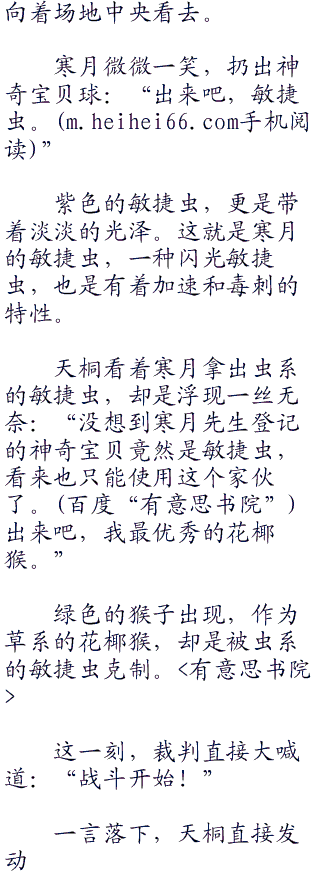 向着场地中央看去。
寒月微微一笑，扔出神
奇宝贝球：“出来吧，敏捷
虫。(m.heihei66.com手机阅
读)”
紫色的敏捷虫，更是带
着淡淡的光泽。这就是寒月
的敏捷虫，一种闪光敏捷
虫，也是有着加速和毒刺的
特性。
天桐看着寒月拿出虫系
的敏捷虫，却是浮现一丝无
奈：“没想到寒月先生登记
的神奇宝贝竟然是敏捷虫，
看来也只能使用这个家伙
了。(百度“有意思书院”)
出来吧，我最优秀的花椰
猴。”
绿色的猴子出现，作为
草系的花椰猴，却是被虫系
的敏捷虫克制。<有意思书院
>
这一刻，裁判直接大喊
道：“战斗开始！”
一言落下，天桐直接发
动